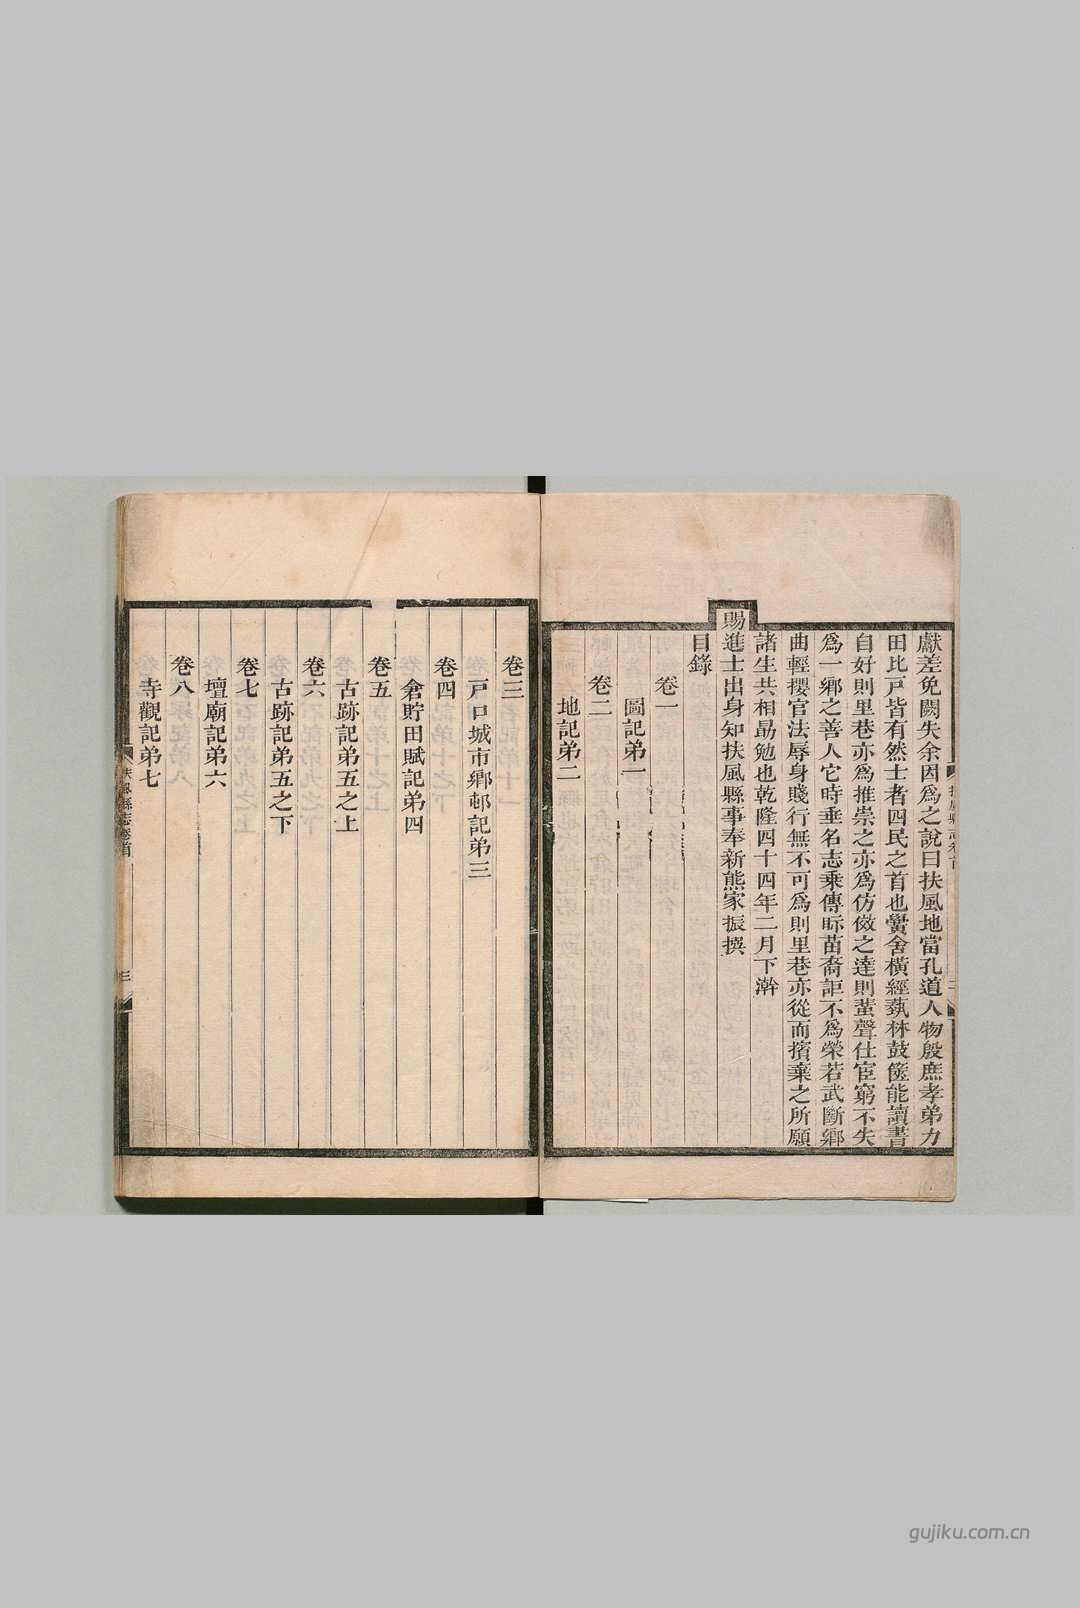 獻差免闕失余因爲之說曰扶風地當孔道人物殷庶孝弟力
田比戸皆有然士者四民之首也黌舍橫經蓺林鼓篋能讀書
自好則里巷亦爲推崇之亦爲仿傚之達則蜚聲仕宦窮不失
爲一鄉之善人它時垂名志乘傳眎苗裔詎不爲榮若武斷鄉
曲輕攖官法辱身賤行無不可爲則里巷亦從而擯棄之所願
諸生共相勗勉也乾隆四十四年二月下澣
賜進士出身知扶風縣事奉新熊家振撰
目錄
卷一
圖記弟一
卷二
地記弟二
卷三
戸口城市鄉邨記弟三
卷四
倉貯田賦記弟四
卷五
古跡記弟五之上
卷六
古跡記弟五之下
卷七
壇廟記弟六
卷八
寺觀記弟七
扶風縣志卷首
三
gujiku.com.cn